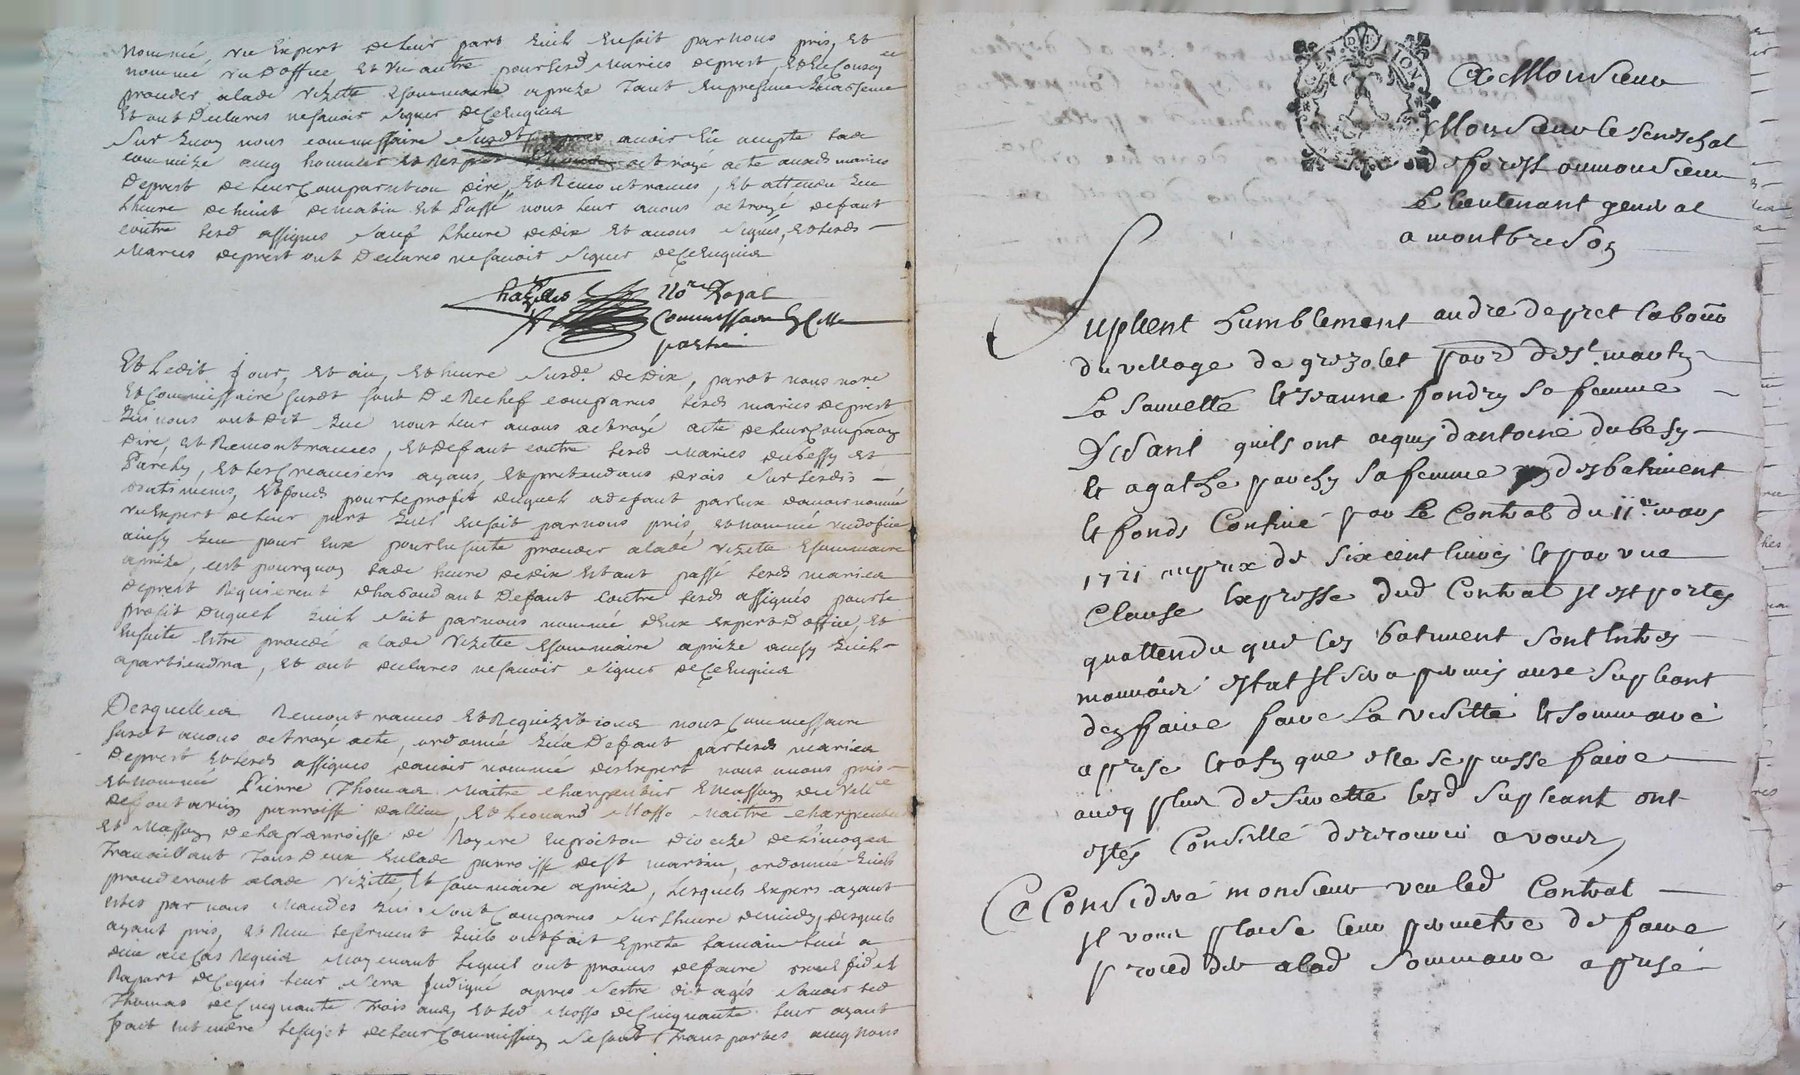 nommé, un Expert de leur part quil en soit par nous pris, Et
nommé un d'office, Et un autre pour lesd Mariés depret,
proceder a lade vizitte Et sommaire aprize tant en presence quabsence
Et ont declarés ne scavoir signer de ce Enquis
Sur quoy nous commissaire susdt avoir accepte lade
commize avec honneur Et Respet octroyé acte auxds mariés
Depret de leur Comparution dire, Et Remontrances, Et attendu que
Lheure de huit de matin Est Passé nous leur avons octroyé defaut
contre lesd assignés sauf Lheure de dix Et avons signés, Et lesds
Mariés depret ont Declarés ne scavoir signer de ce Enquis
No.re Royal
Commissaire En cette
partie
Et Ledit jour, et an, et heure susde. de dix, pardt nous nore
Et Commissaire susdt sont De Rechef comparus lesds mariés depret
qui nous ont dit que nous leur avons octroyé acte de leur Compaon
Dire, et Remontrances, Et defaut contre lesds Mariés dubessy et
Parchy, et les Creanciers ayans, et pretendans drois sur lesdis
batimens, Et fonds pour le profit duquel a defaut par eux davoir nommé
un Expert de leur part quil en soit par nous pris, et nommé un dofice
ainsy que pour Eux pour ensuite proceder a lade vizitte Et sommaire
aprize, cest pourquoy lade heure de dix Estant passé lesds mariés
Depret Requierent dhabondant Defaut contre lesds assignés pour le
profit duquel quil soit par nous nommé deux expert d office, et
Ensuite Estre procedé a lade Vizitte Et sommaire aprize ainsy quil
apartiendra, et ont declarés ne scavoir signer de ce Enquis
Desquelles Remontrances et Requizitions nous Commissaire
susdt avons octroyé acte, ordonné qua Defaut par lesds mariés
Depret et lesds assignés davoir nommé des Expert nous avons pris
et nommé Pierre Thomas Maitre charpentier Et Masson du
parroisse dallieu, et Leonard Mosso Maitre charpentier
Et Masson de la parroisse de Royere en poitou dioceze de Limoges
Travaillant tous Deux En lade parroisse de St martin, ordonné quils
procederont a lade vizitte, Et sommaire aprize, Lesquels Expers ayant
estés par nous Mandés qui sont Comparus sur Lheure de midy, desquels
ayant pris, et Reçu le serment quils ont fait Et preté la main levé a
dieu au Cas Requis Moyenant lequel ont promis de faire fidel
Raport de ce qui leur sera Indiqué apres s'estre dit agés scavoir led
Thomas de Cinquante trois ans, Et led Mosso de Cinquante leur ayant
fait Entendre le sujet de leur Commission se sont transportés avec nous
GEN D LION
A Monsieur
Monsieur le senechal
de forest ou monsieur
le lieutenant general
a montbrison
Suplient humblement andre depret labour
du village de grezolet parr de st. martin
La sauveté et jeanne fondry sa femme
Disant quils ont acquis dantoine dubessy
et agathe parchy sa femme des batiment
et fonds Confiné par le Contrat du 11e. mars
1721 au prix de six cent livres et par une
Clause Expresse dud Contrat il est portés
quattendu que les batiment sont en tres
mauvais estat il sera permis aux supliant
den faire faire la visitte et sommaire
aprise et afin que elle se puisse faire
avec plus de surette lesd supliant ont
estés Conseillé de recourir a vous,
Ce Consideré monsieur veu led Contrat
il vous plaise leur permetre de faire
proceder a lad sommaire aprise